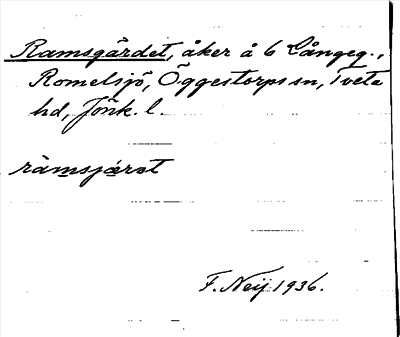 Ramsgärdet, åker å 6 Långeg.,
Romelsjö, Öggestorps sn, Tveta
hd, Jönk. l.
ràmsjærət
F. Neij 1936.